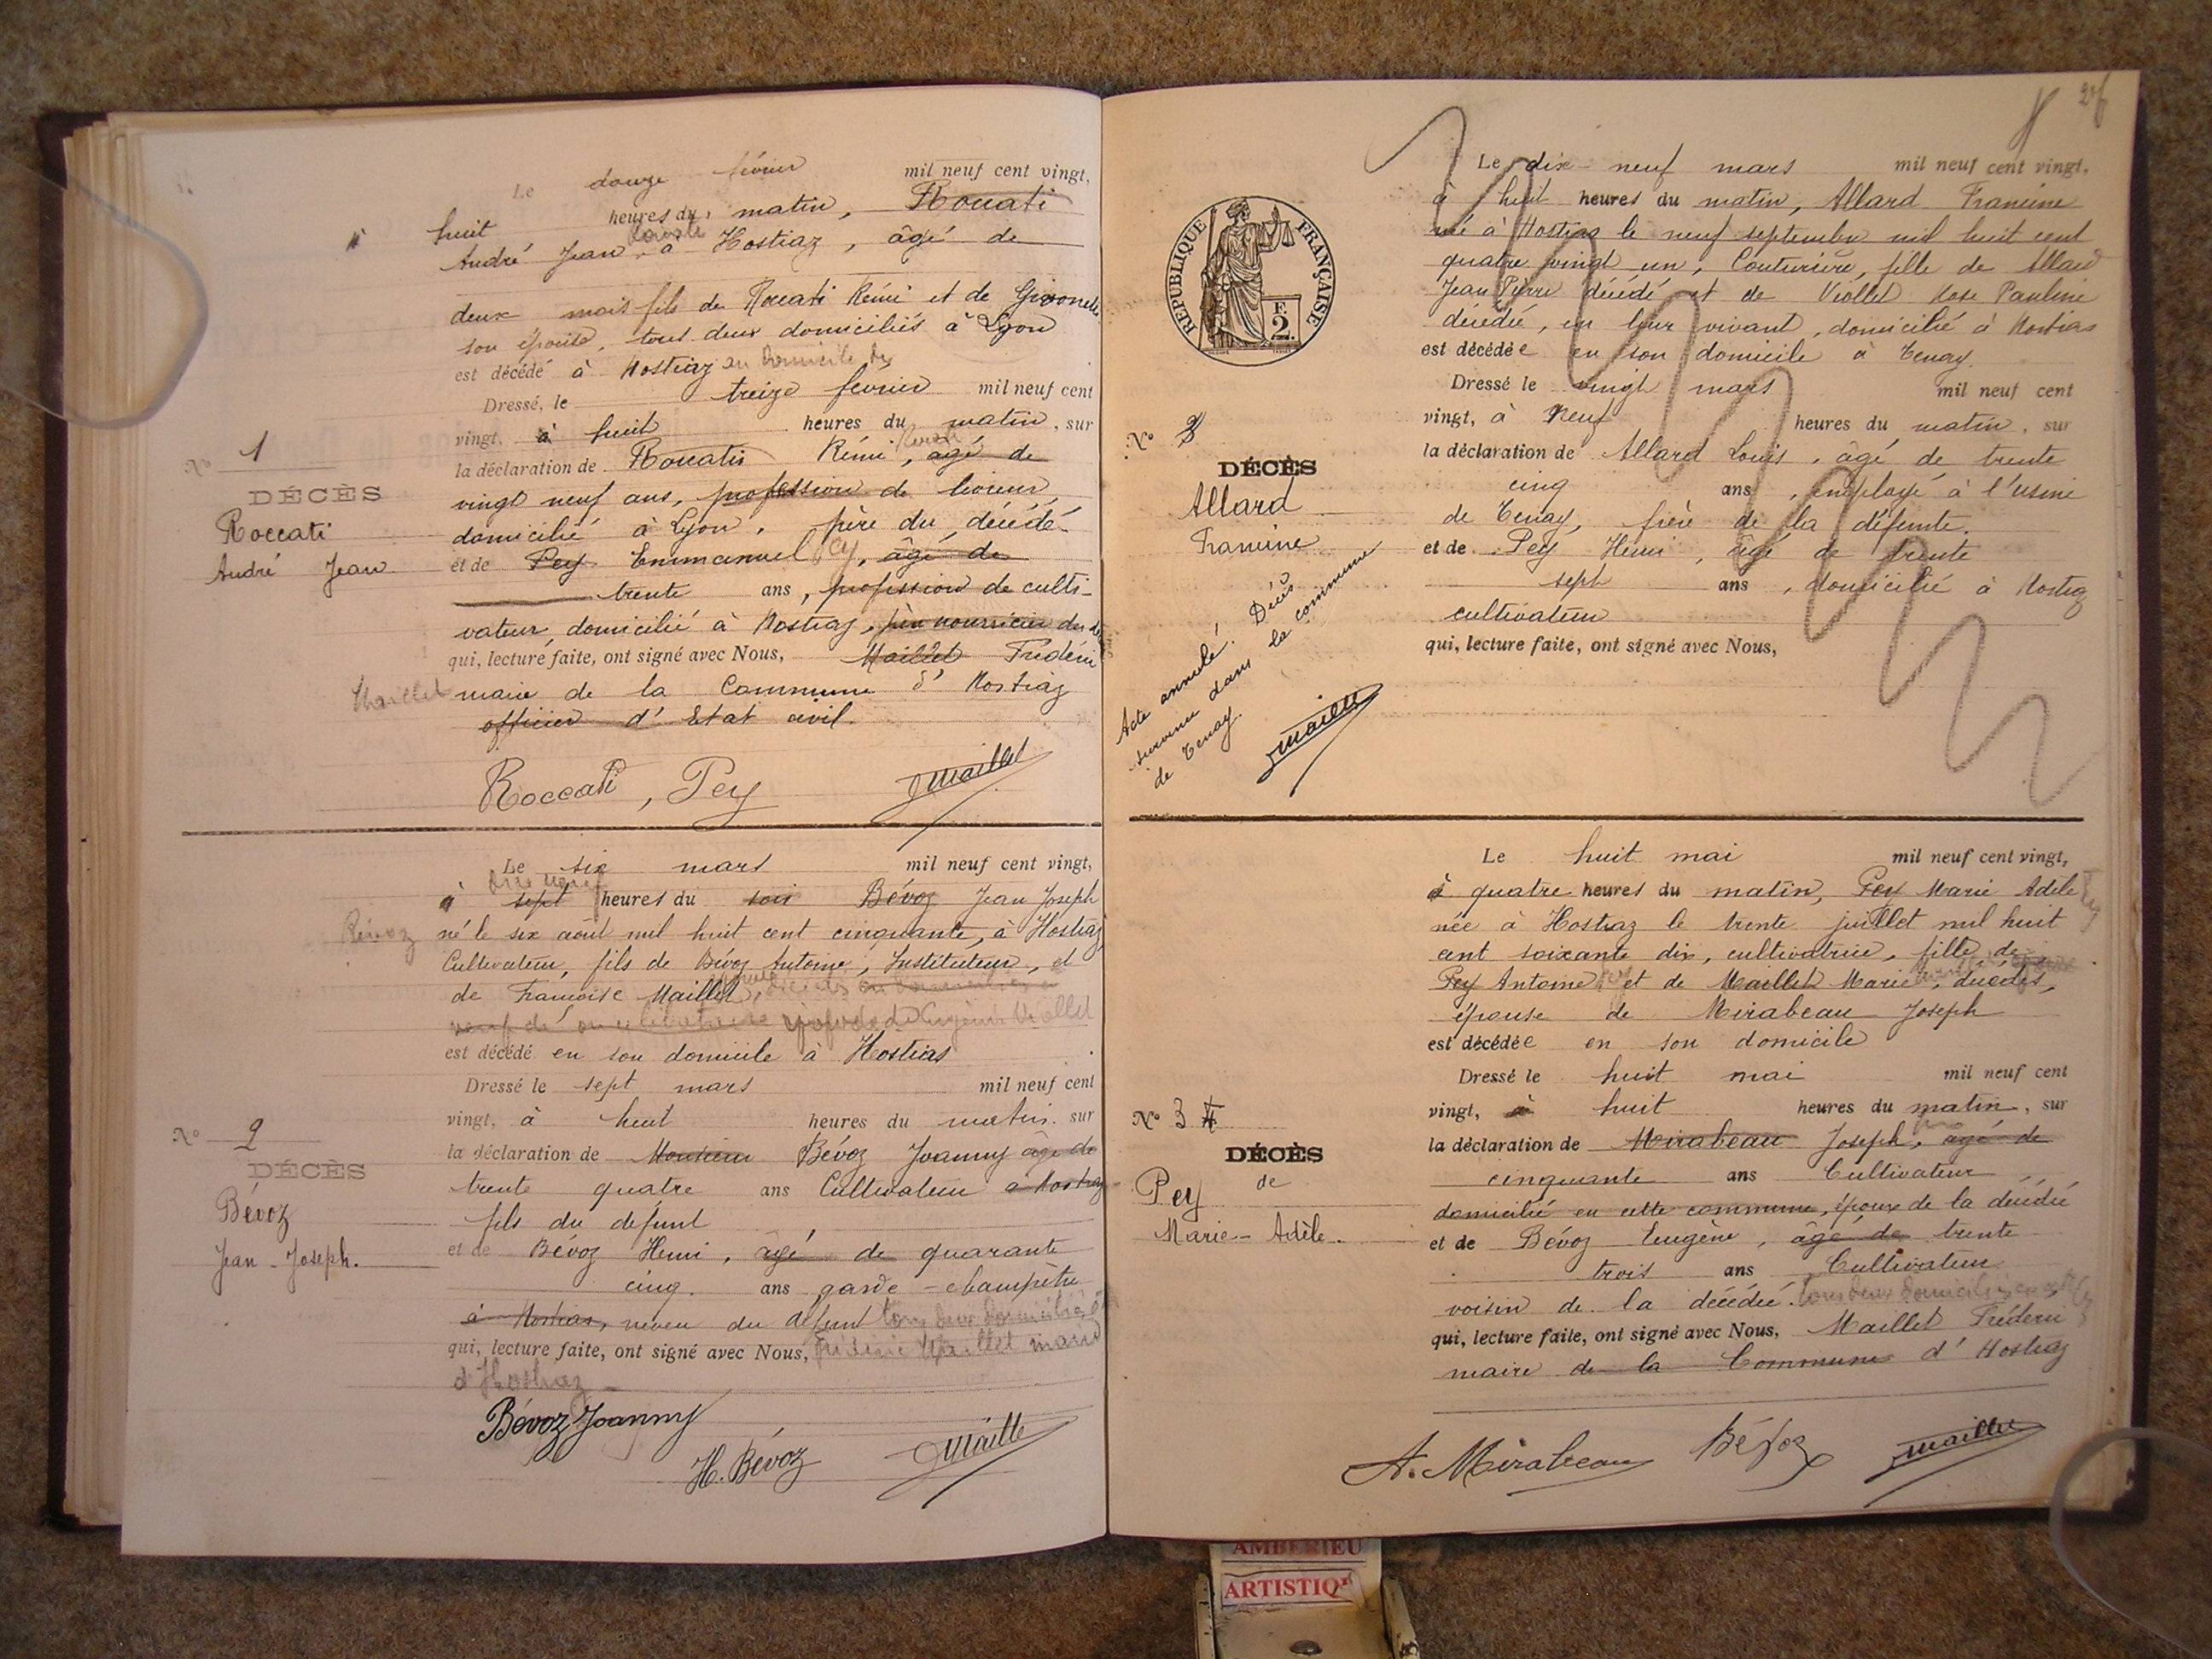 Le douze février mil neuf cent vingt,
à huit heures du matin, Roccati
André Jean, à Hostiaz, âgé de
deux mois fils de Roccati Rémi et de
son épouse, tous deux domiciliés à Lyon
est décédé à Hostiaz au domicile de
Dressé, le treize fevrier mil neuf cent
vingt, à huit heures du matin, sur
la déclaration de Roccatis Rémi, âgé de
vingt neuf ans, profession de
domicilié à Lyon, père du décédé
et de Pey Emmanuel Pey, âgé de
trente ans, profession de culti-
vateur, domicilié à Hostiaz, père nourricier du
qui, lecture faite, ont signé avec Nous, Maillet Frédéric
Maillet maire de la Commune d'Hostiaz
officier d'Etat civil.
Roccati, Pey Maillet
No 1
DÉCÈS
Roccati
André Jean
Le six mars mil neuf cent vingt,
à sept heures du soir Bévoz Jean Joseph
Bévoz né le six août mil huit cent cinquante, à Hostiaz
Cultivateur, fils de Bévoz Antoine, Instituteur, et
de Francoise Maillet,
est décédé en son domicile à Hostias
Dressé le sept mars mil neuf cent
vingt, à huit heures du matin. sur
la déclaration de Monsieur Bévoz Joanny âgé de
trente quatre ans Cultivateur à Hostiaz
fils du defunt
et de Bévoz Henri, âgé de quarante
cinq. ans garde-champêtre
à Hostias, neveu du défunt tous deux domiciliés à
qui, lecture faite, ont signé avec Nous, Frédéric Maillet maire
d'Hostiaz
Bévoz Joanny
H. Bévoz Maillet
No 2
DÉCÈS
Bévoz
Jean-Joseph.
Le dix-neuf mars mil neuf cent vingt,
à huit heures du matin, Allard Francine
né à Hostias le neuf septembre mil huit cent
quatre vingt un, Couturière, fille de Allard
Jean Pierre décédé et de Viollet Rose Pauline
décédée, en leur vivant, domicilié à Hostias
est décédée en son domicile à Tenay
Dressé le vingt mars mil neuf cent
vingt, à Neuf heures du matin, sur
la déclaration de Allard Louis, âgé de trente
cinq ans, employé à l'usine
de Tenay, frère de la défunte.
et de Pey Henri, âgé de trente
sept ans, domicilié à Hostiaz
cultivateur
qui, lecture faite, ont signé avec Nous,
RÉPUBLIQUE FRANÇAISE
F.
2.
No 3
DÉCÈS
Allard
Francine
Acte annulé. Décès
survenu dans la commune
de Tenay.
Maillet
Le huit mai mil neuf cent vingt,
à quatre heures du matin, Pey Marie Adèle
née à Hostiaz le trente juillet mil huit
cent soixante dix, cultivatrice, fille de
Pey Antoine et de Maillet Marie, décédés,
épouse de Mirabeau Joseph
est décédée en son domicile
Dressé le huit mai mil neuf cent
vingt, à huit heures du matin, sur
la déclaration de Mirabeau Joseph, âgé de
cinquante ans Cultivateur
domicilié en cette commune, époux de la décédée
et de Bévoz Eugène, âgé de trente
trois ans Cultivateur
voisin de la décédée. tous deux domiciliés
qui, lecture faite, ont signé avec Nous, Maillet Fréderic
maire de la Commune d'Hostiaz
A. Mirabeau Bévoz Maillet
No 3 4
DÉCÈS
de
Pey
Marie-Adèle.
AMBERIEU
ARTISTIQ